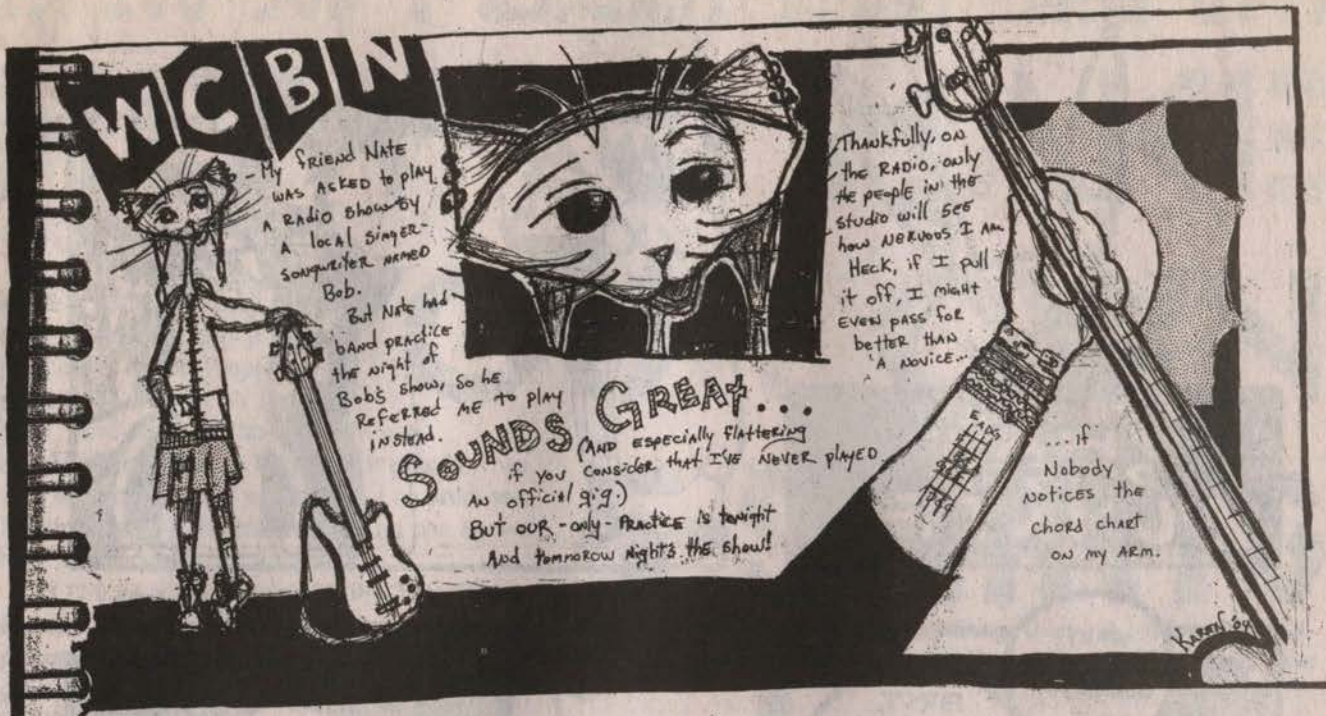 WCBN
My friend Nate
was asked to play
a radio show by
a local singer-
songwriter named
Bob.
But Nate had
band practice
the night of
Bob's show, so he
referred me to play
instead.
SOUNDS GREAT...
(And especially flattering
if you consider that I've never played
an official gig.)
But our -only- practice is tonight
And tommorow night's the show!
Thankfully, on
the radio, only
the people in the
studio will see
how nervous I am.
Heck, if I pull
it off, I might
even pass for
better than
a novice...
EADG
...if
Nobody
notices the
chord chart
on my arm.
KAREN '04